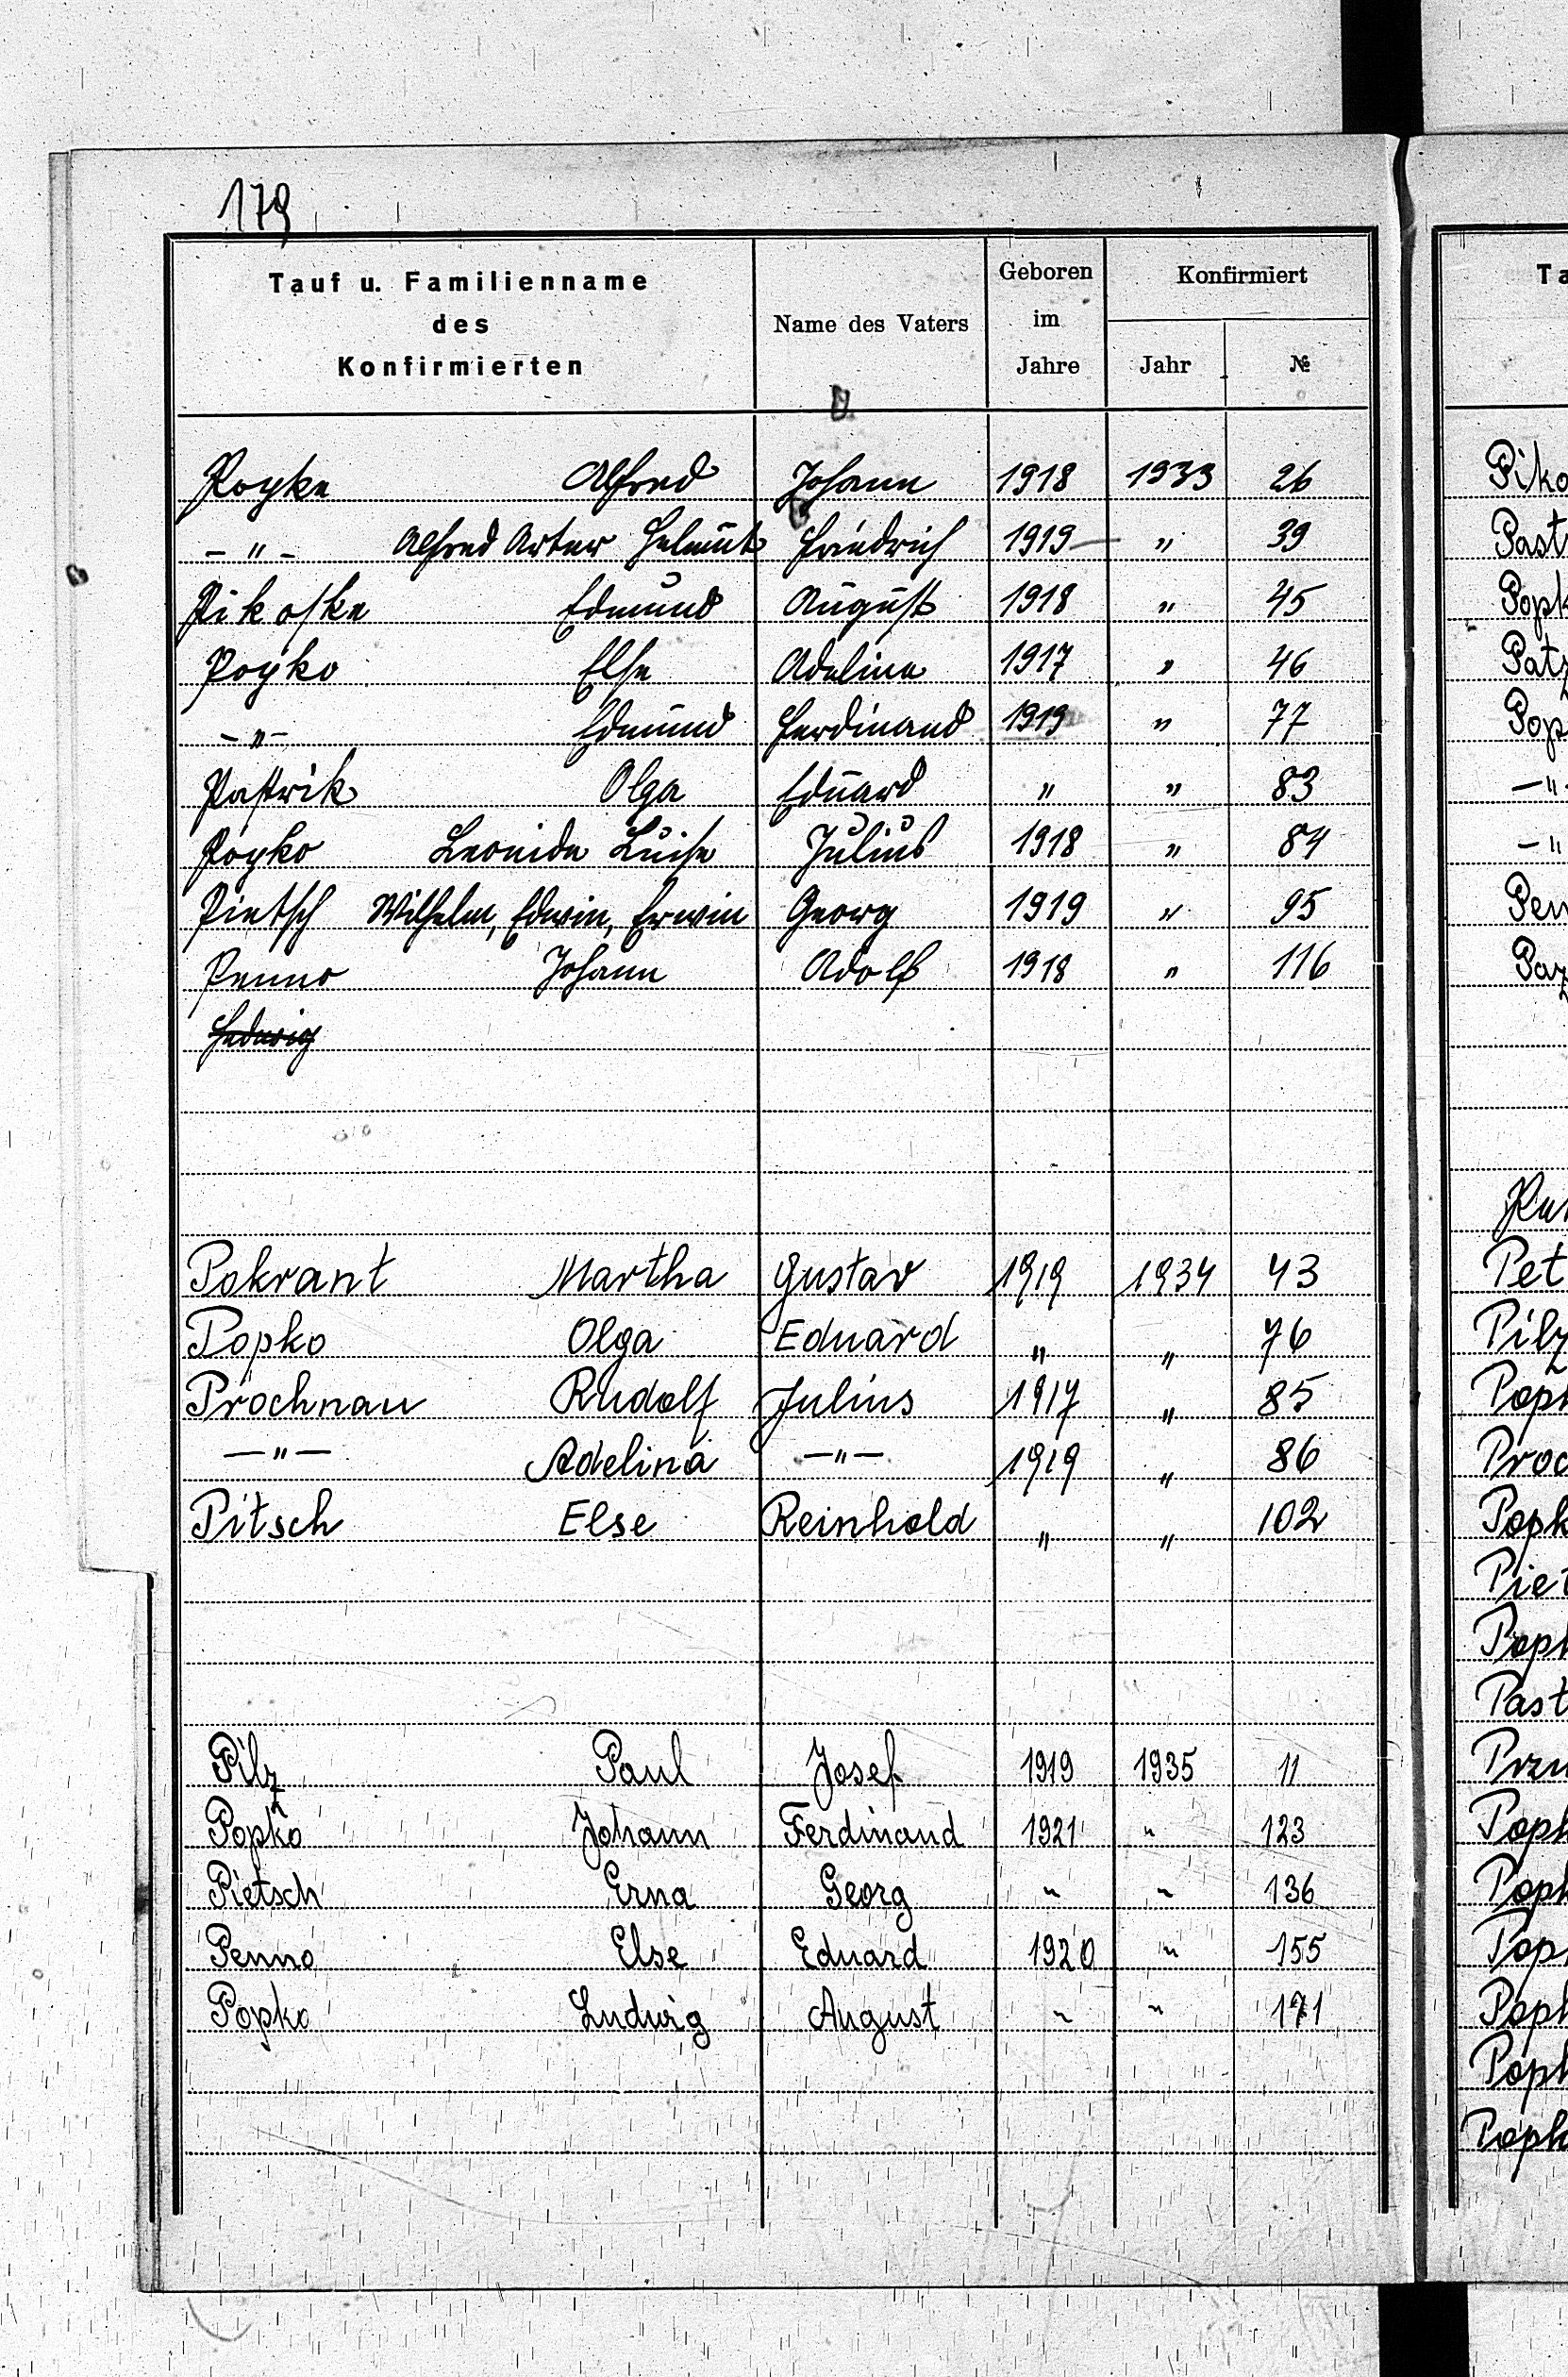 179
Tauf u. Familienname des Konfirmierten | Name des Vaters | Geboren im Jahre | Konfirmiert Jahr | №
Popke Alfred Johann 1918 1933 26
- " - Alfred Artur Helmut Friedrich 1919 — " 39
Pikoske Edmund August 1918 " 45
Popko Else Adeline 1917 " 46
- " - Edmund Ferdinand 1919 " 77
Pastrik Olga Eduard " " 83
Popko Leonide Luise Julius 1918 " 84
Pietsch Wilhelm, Edwin, Erwin Georg 1919 " 95
Penno Johann Adolf 1918 " 116
Hedwig
Pokrant Martha Gustav 1919 1934 43
Popko Olga Eduard " " 76
Prochnau Rudolf Julius 1917 " 85
— " — Adelina — " — 1919 " 86
Pitsch Else Reinhold " " 102
Pilz Paul Josef 1919 1935 11
Popko Johann Ferdinand 1921 " 123
Pietsch Erna Georg " " 136
Penno Else Eduard 1920 " 155
Popko Ludwig August " " 171